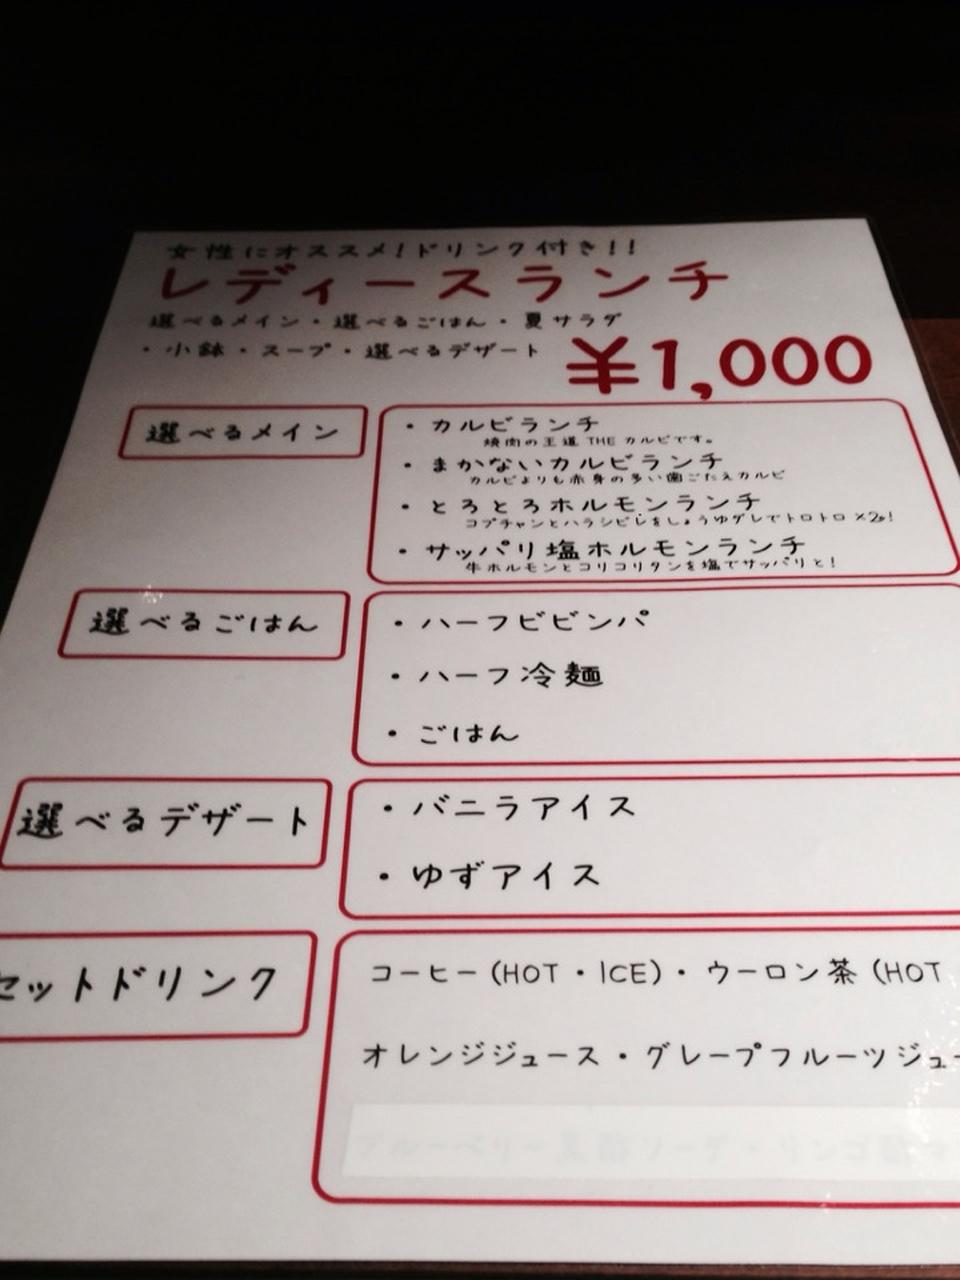 女性にオススメ!ドリンク付き!!
レディースランチ
選べるメイン・選べるごはん・夏サラダ
・小鉢・スープ・選べるデザート
¥1,000
選べるメイン
・カルビランチ
焼肉の王道 THE カルビです。
・まかないカルビランチ
カルビよりも赤身の多い歯ごたえカルビ
・とろとろホルモンランチ
コプチャンとハラシビレをしょうゆダレでトロトロ×2♪!
・サッパリ塩ホルモンランチ
牛ホルモンとコリコリタンを塩でサッパリと!
選べるごはん
・ハーフビビンパ
・ハーフ冷麺
・ごはん
選べるデザート
・バニラアイス
・ゆずアイス
セットドリンク
コーヒー(HOT・ICE)・ウーロン茶(HOT
オレンジジュース・グレープフルーツジュー
ブルーベリー黒酢ソーダ・リンゴ酢